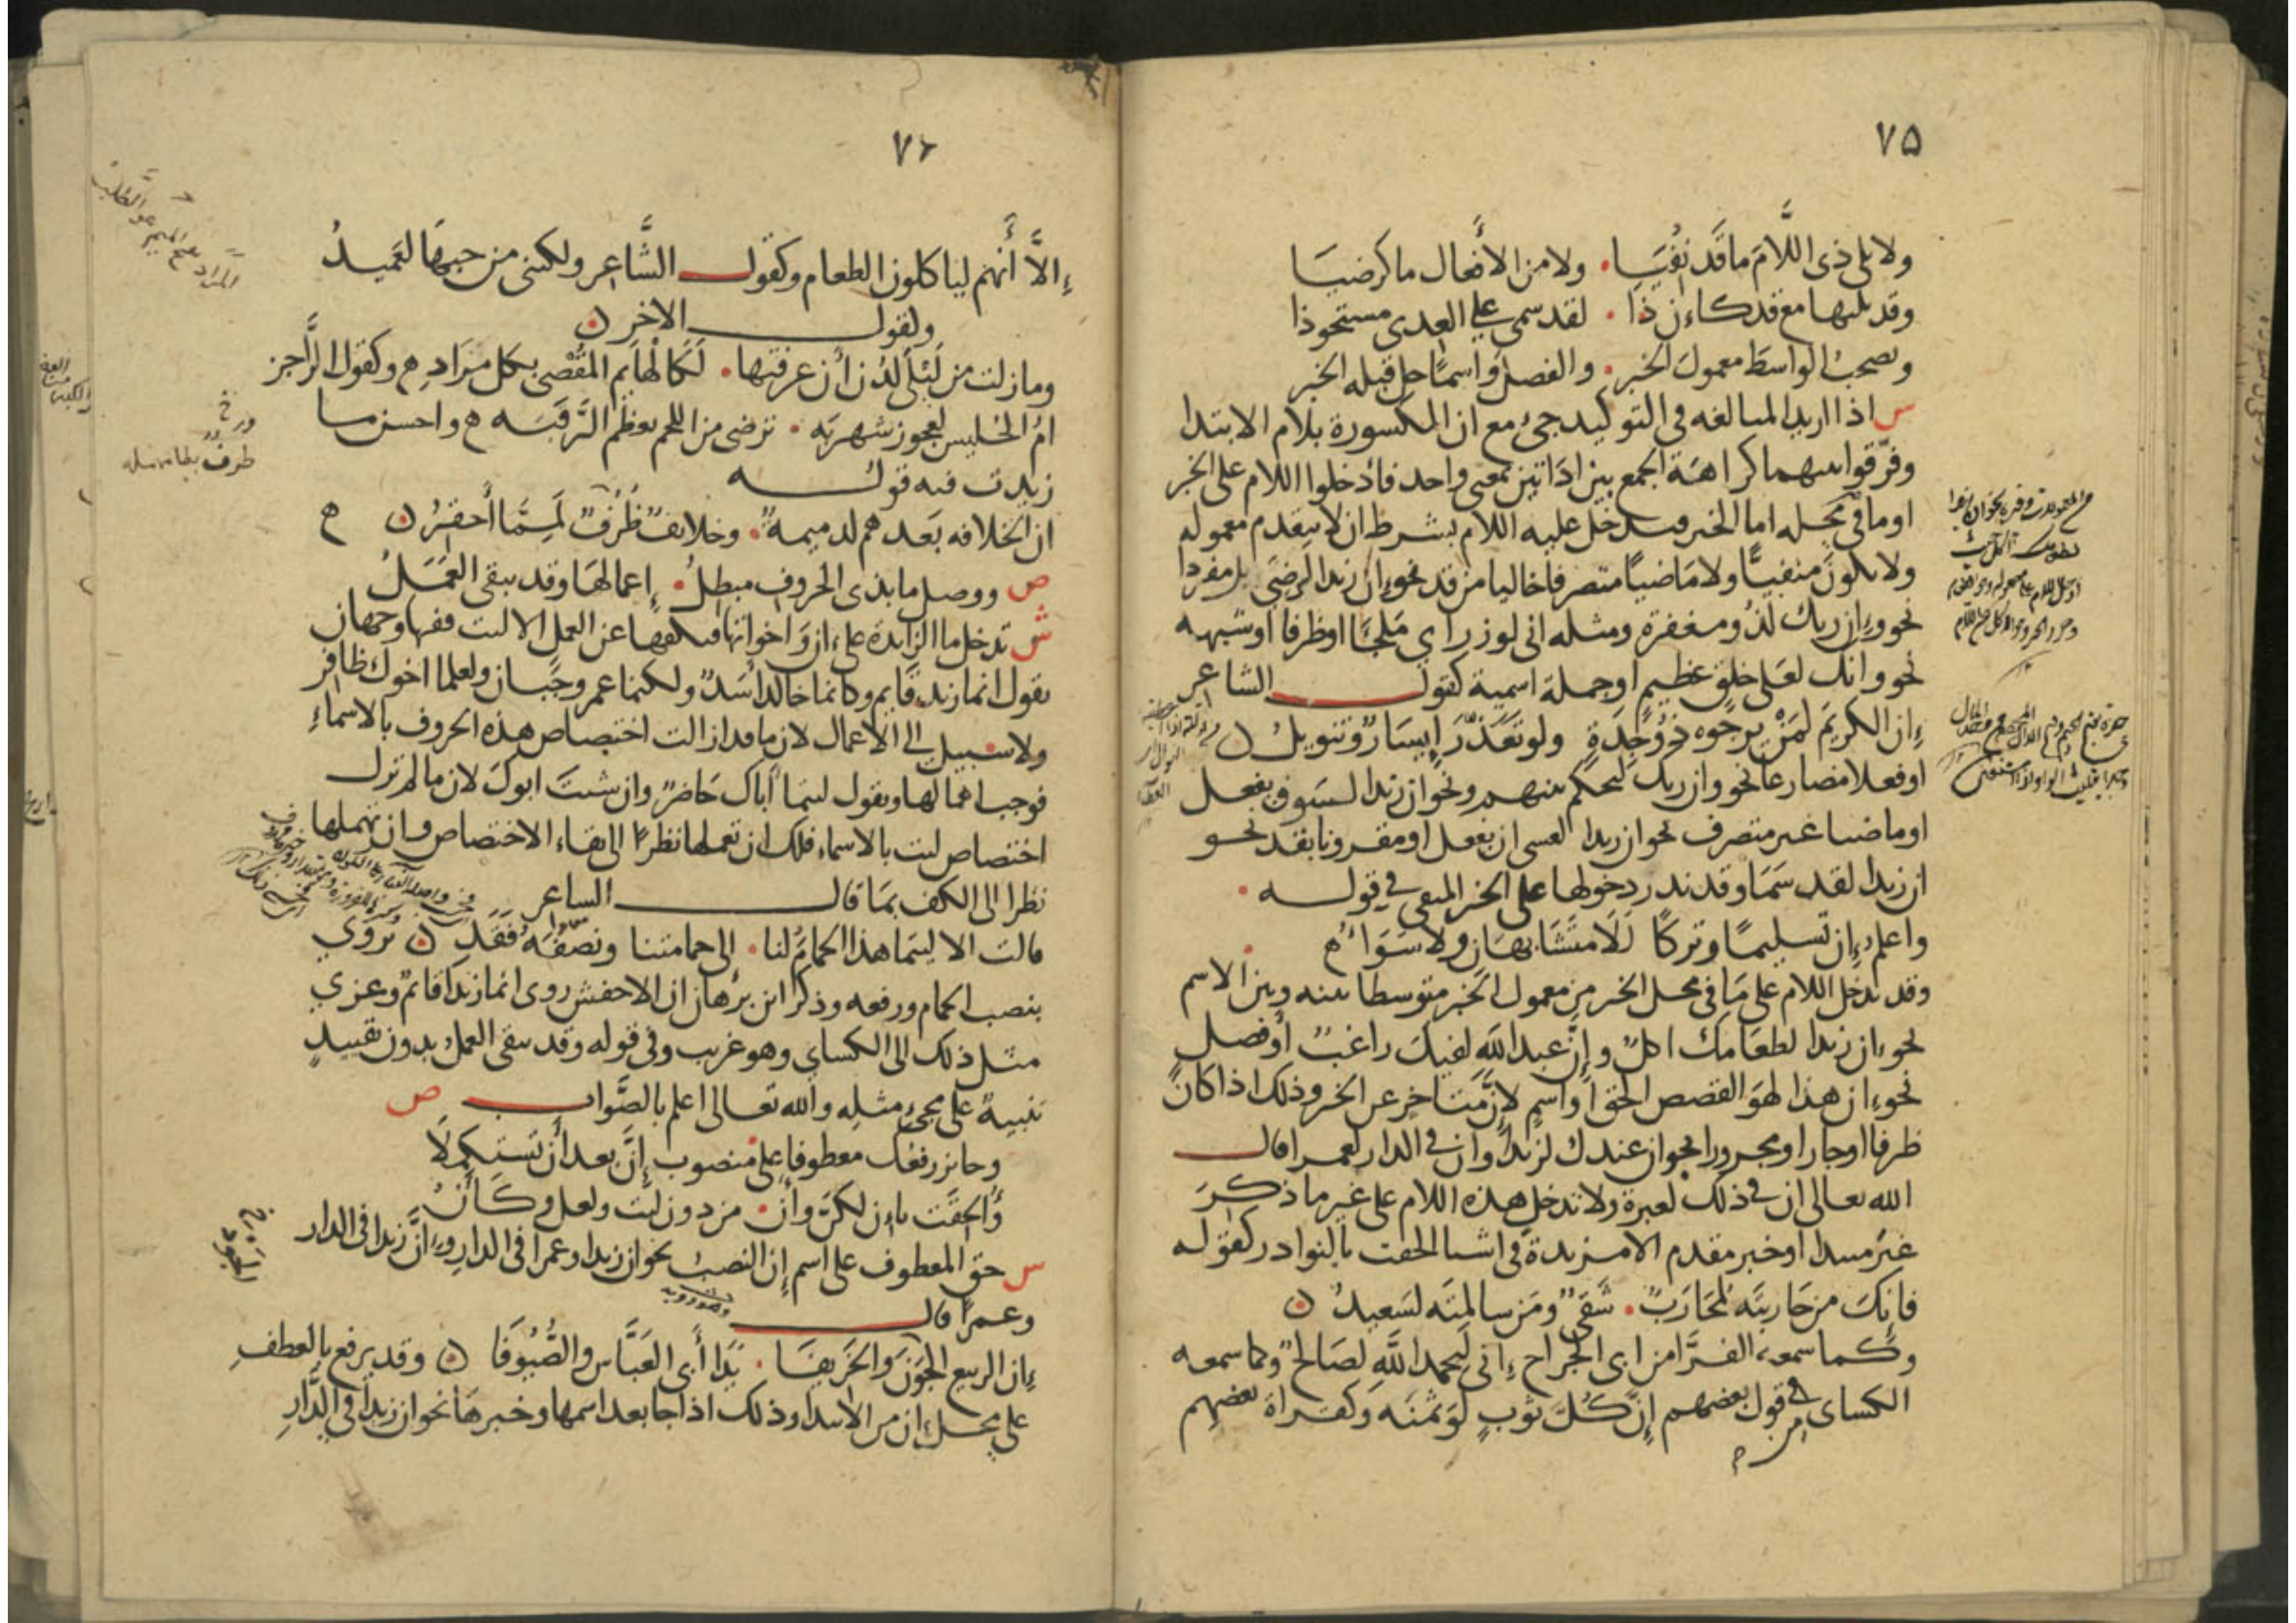 ٧٥
ولا يلى ذى اللَّامَ ما قَد نُفِيَا . ولا من الأفعال ما كرضيَا
وقد يليها مع قد كاِنَّ ذا . لقد سمى على العدى مستحوذا
وتصحبُ الواسطَ معمولَ الخبر . والفصلَ واسمًا حل قبله الخبر
س اذا اريد المبالغه في التوكيد جئ مع ان المكسورة بلام الابتدا
وفرّقوا بينهما كراهَة الجمع بين ادَاتين بمعنى واحد فادخلوا اللام على الخبر
او ما في محله اما الخبر فتدخل عليه اللام بشرط ان لا يتقدم معموله
ولا يكونَ منفيًّا ولا مَاضيًا متصرفا خاليا من قد نحو ان زيدا لرضيَ بل مفردا
نحو وإن ربك لذُو مغفرة ومثله انى لوزر اي مَلجَأ او ظرفا او شبهه
نحو وانك لعَلى خلقٍ عظيمٍ او جملة اسمية كقول الشاعر
إن الكريمَ لمَنْ يرجوه ذو جِدَةٍ ولو تعَذّر إيسَارٌ وتنويلُ ن
او فعلا مضارعا نحو وان ربك ليحكم بينهم ونحو ان زيدا لسَوف يفعل
او ماضيا غير متصرف نحو ان زيدا لعسى ان يفعل او مقرونا بقد نحو
ان زيدا لقد سَمَا وقد ندر دخولها على الخبر المنفى في قوله .
واعلم إن تسليمًا وتركًا لَلَا مُتَشَابهَان ولا سَوَاءُ
وقد تدخل اللام على مَا في محل الخبر من معمول الخبر متوسطا بينه وبين الاسم
نحو ان زيدا لطعَامَك اكلٌ وإنَّ عبد الله لفيكَ راغبٌ أو فصلٍ
نحو إن هذا لهوَ القصص الحق او اسمٍ لإنَّ مُتَاخرٍ عن الخبر وذلك اذا كانَ
ظرفا او جارا ومجرورا نحو ان عندك لزيدا وان في الدار لعمرا قال
الله تعالى ان في ذلك لعبرة ولا تدخل هذه اللام على غير ما ذكرَ
غيرَ مبتدا او خبر مقدم الا مزيدة في اشيا الحقت بالنوادر كقوله
فانكَ من حَاربتَه لمحَارَبٌ . شقىٌ ومَن سالمتَه لسَعيدُ ن
وكما سمعه الفرَّا من ابى الجراح إنى لَبحمد اللَّهِ لصَالحٌ وكما سمعه
الكساى في قول بعضهم إنَّ كلَّ ثوبٍ لَوَ ثمَنَه وكقراة بعضهم
٧٦
إلاَّ أَنهم لياكلون الطعام وكقول الشَّاعر ولكننى من حبهَا لعَميدُ
ولقول الاخر ن
وما زلت من لَيْلَى لدُن أن عرفتها . لَكَالهَايم المُقْصَى بكل مَرَادِ وكقول الرَّاجز
امُ الحُليس لعجوز شهربَه . ترضى من اللحم بعظم الرَّقَبَه واحسن ما
زيدت فيه قوله
ان الخلافه بَعدهم لدميمةٌ . وخلائفٌ ظُرُفٌ لَمِمَّا أحقرُ ن
ص ووصل ما بذى الحروف مبطلُ . إعمالهَا وقد يبقى العَمَلُ
ش تدخل ما الزايدة على ان وَاخواتها فتكفها عن العمل الا ليت ففيها وجهان
تقول انما زيد قَايم وكانما خالد اسَدٌ ولكنما عمرو جَبَان ولعلما اخوك ظافر
ولا سَبيل الى الاعمال لان ما قد ازالت اختصاص هذه الحروف بالاسماءِ
فوجب اهمالها وتقول ليتما أباك حَاضر وان شئتَ ابوكَ لان ما لم تزل
اختصاص ليت بالاسماء فلك ان تعملها نظرًا الى بقاء الاختصاص وان تهملها
نظرا الى الكف بمَا قال الشاعر
قالت الا ليتَما هذا الحمامُ لنا . الى حمامتنا ونصفُهُ فَقَدِ ن تروى
بنصب الحمام ورفعه وذكر ابن برهان ان الاخفش روى انما زيدًا قائمٌ وعزى
مثل ذلك الى الكساى وهو غريب وفى قوله وقد يبقى العمل بدون تقييدٍ
تنبيهٌ على مجئ مثلِه والله تعالى اعلم بالصَّواب ص
وجايز رفعُك معطوفا على منصوب إنَّ بعد أن تَستكملَا
وَألحقَت باِن لكنّ وأن . من دون ليت ولعل وكَأَنْ
س حق المعطوف على اسم إن النصبُ نحو ان زيدا وعمرا فى الدار وإنَّ زيدا فى الدار
وعمرًا قال
إن الربيع الجَوْنَ وَالخَريفَا . يَدَا أَبى العَبَّاس والصُّيُوفَا ن وقد يرفع بالعطفِ
على محل ان من الابتدا وذلك اذا جا بعد اسمها وخبرهَا نحو ان زيدا في الدَّارِ